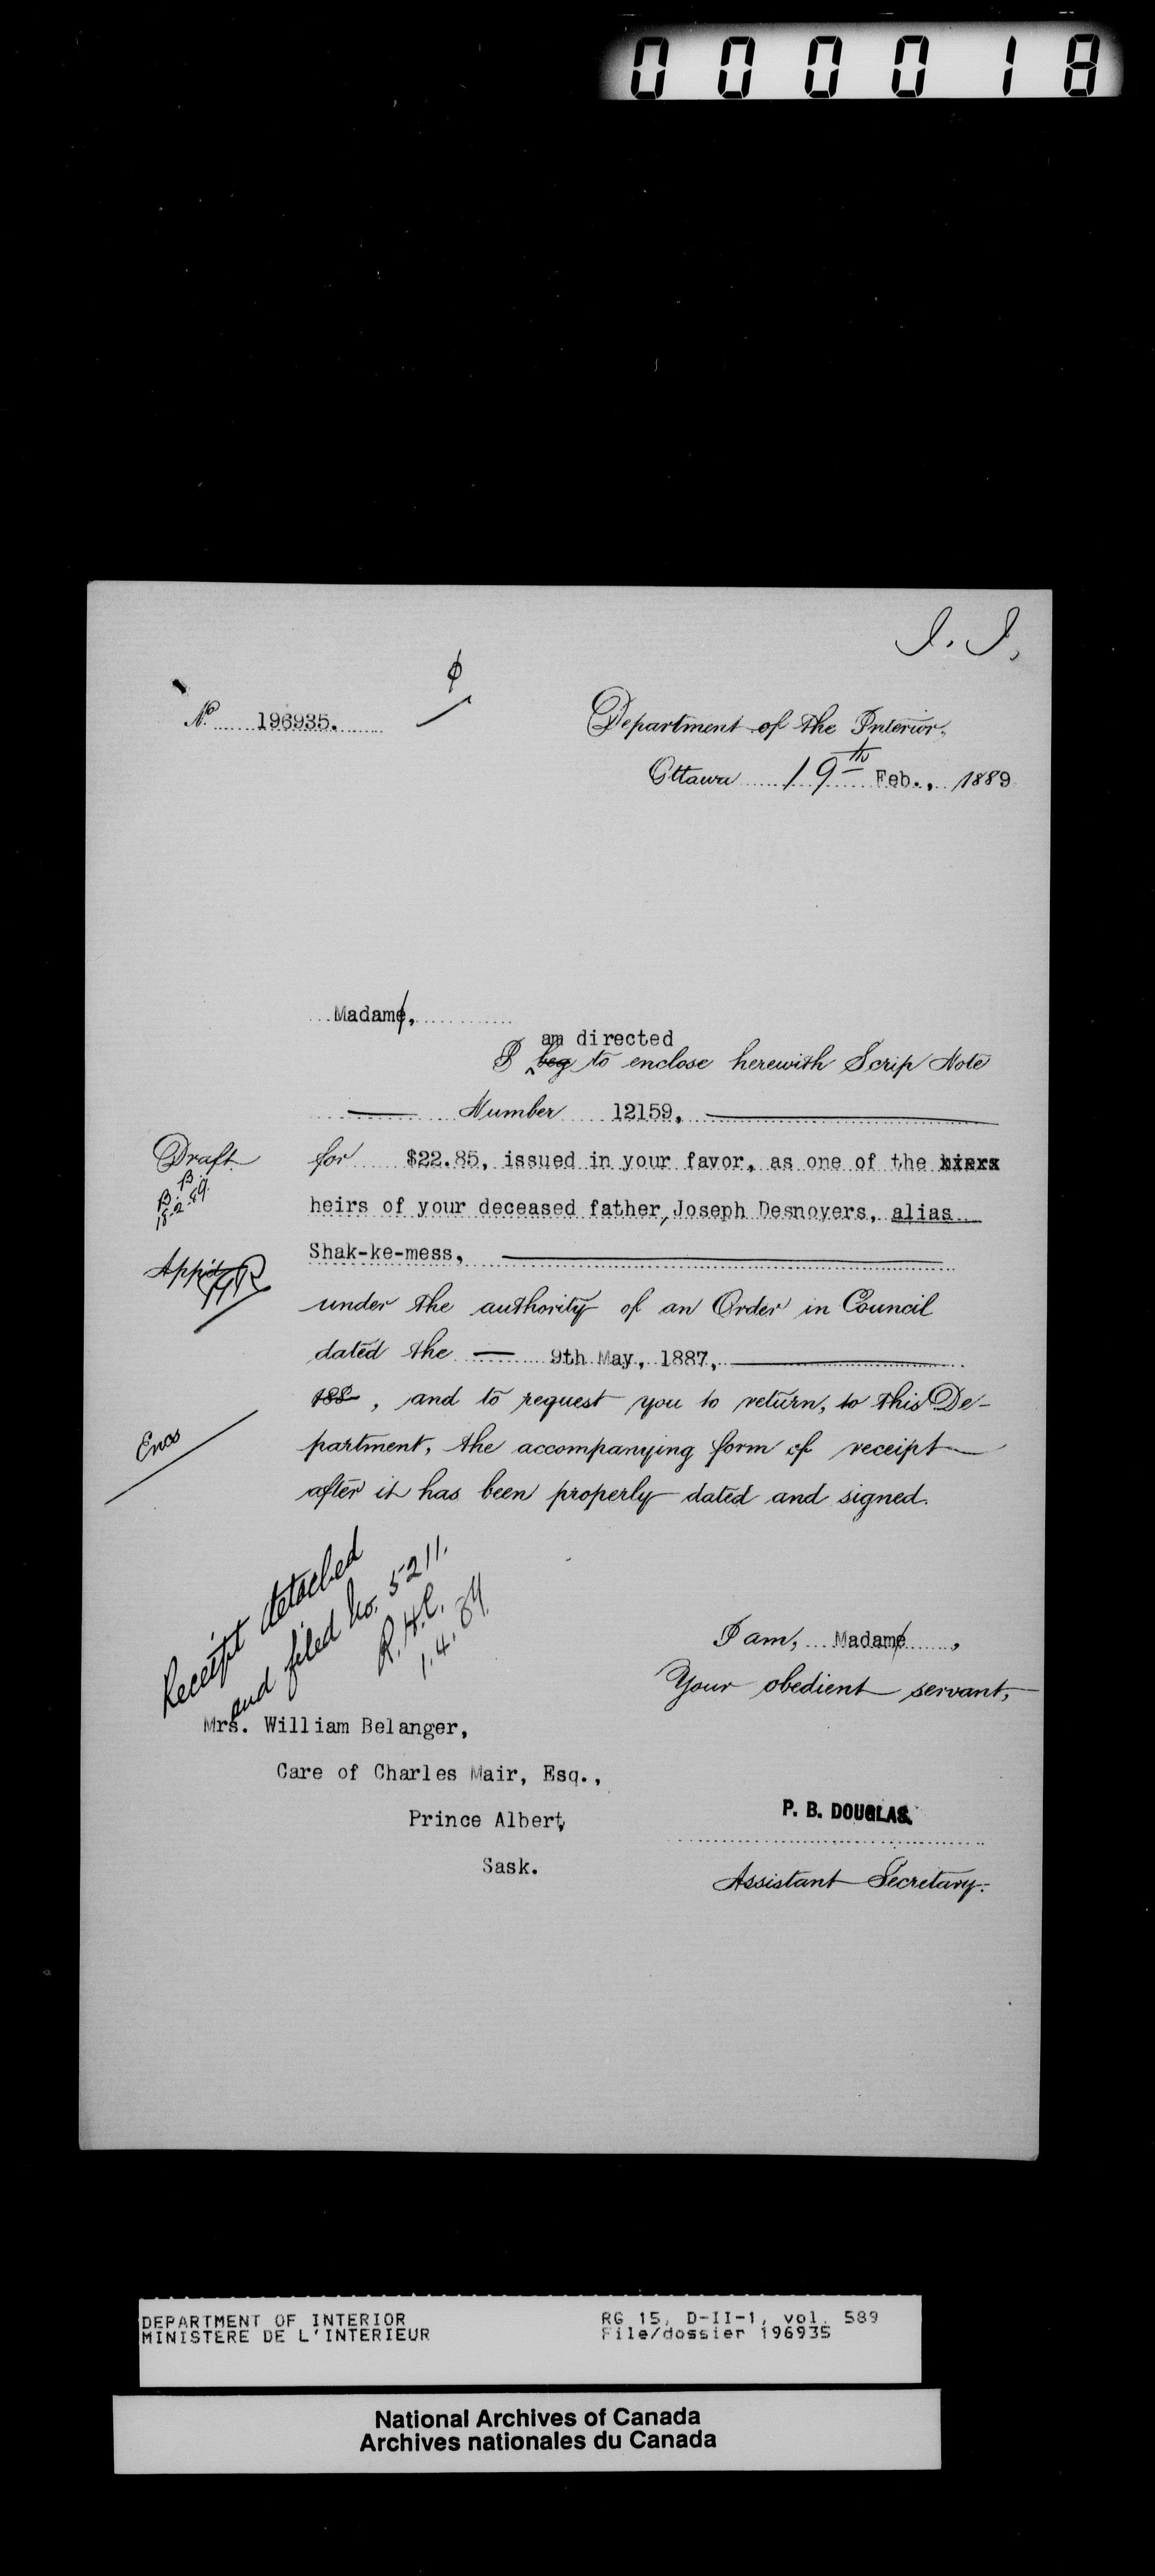 000018
I. I.
No 196935.
Department of the Interior,
Ottawa 19th Feb., 1889
Madame,
am directed
I beg to enclose herewith Scrip Note
Number 12159,
for $22.85, issued in your favor, as one of the
heirs of your deceased father, Joseph Desnoyers, alias
Shak-ke-mess,
under the authority of an Order in Council
dated the 9th May, 1887,
188 , and to request you to return, to this De-
partment, the accompanying form of receipt
after it has been properly dated and signed.
Draft
B.B.
18-2-89.
App'd
Encs
Receipt detached
and filed No. 5211.
R.H.C.
1.4.89.
I am, Madame ,
Your obedient servant,
Mrs. William Belanger,
Care of Charles Mair, Esq.,
Prince Albert,
Sask.
P. B. DOUGLAS.
Assistant Secretary.
DEPARTMENT OF INTERIOR RG 15, D-II-1, vol. 589
MINISTERE DE L'INTERIEUR File/dossier 196935
National Archives of Canada
Archives nationales du Canada